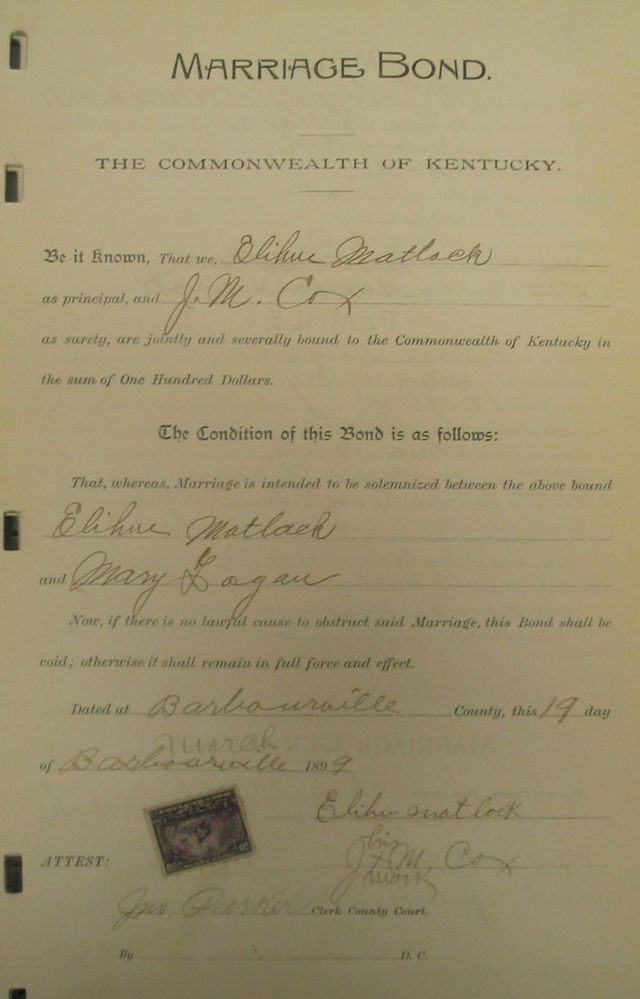 MARRIAGE BOND.
THE COMMONWEALTH OF KENTUCKY.
Be it Known, That we, Elihue Matlock
as principal, and J. M. Cox
as surety, are jointly and severally bound to the Commonwealth of Kentucky in
the sum of One Hundred Dollars.
The Condition of this Bond is as follows:
That, whereas, Marriage is intended to be solemnized between the above bound
Elihue Matlack
and Mary Logan
Now, if there is no lawful cause to obstruct said Marriage, this Bond shall be
void; otherwise it shall remain in full force and effect.
Dated at Barbourville County, this 19 day
March
of Barbourville 1899
Elihu Matlock
his
ATTEST: J x M Cox
mark
Jno Parker Clerk County Court.
By D. C.